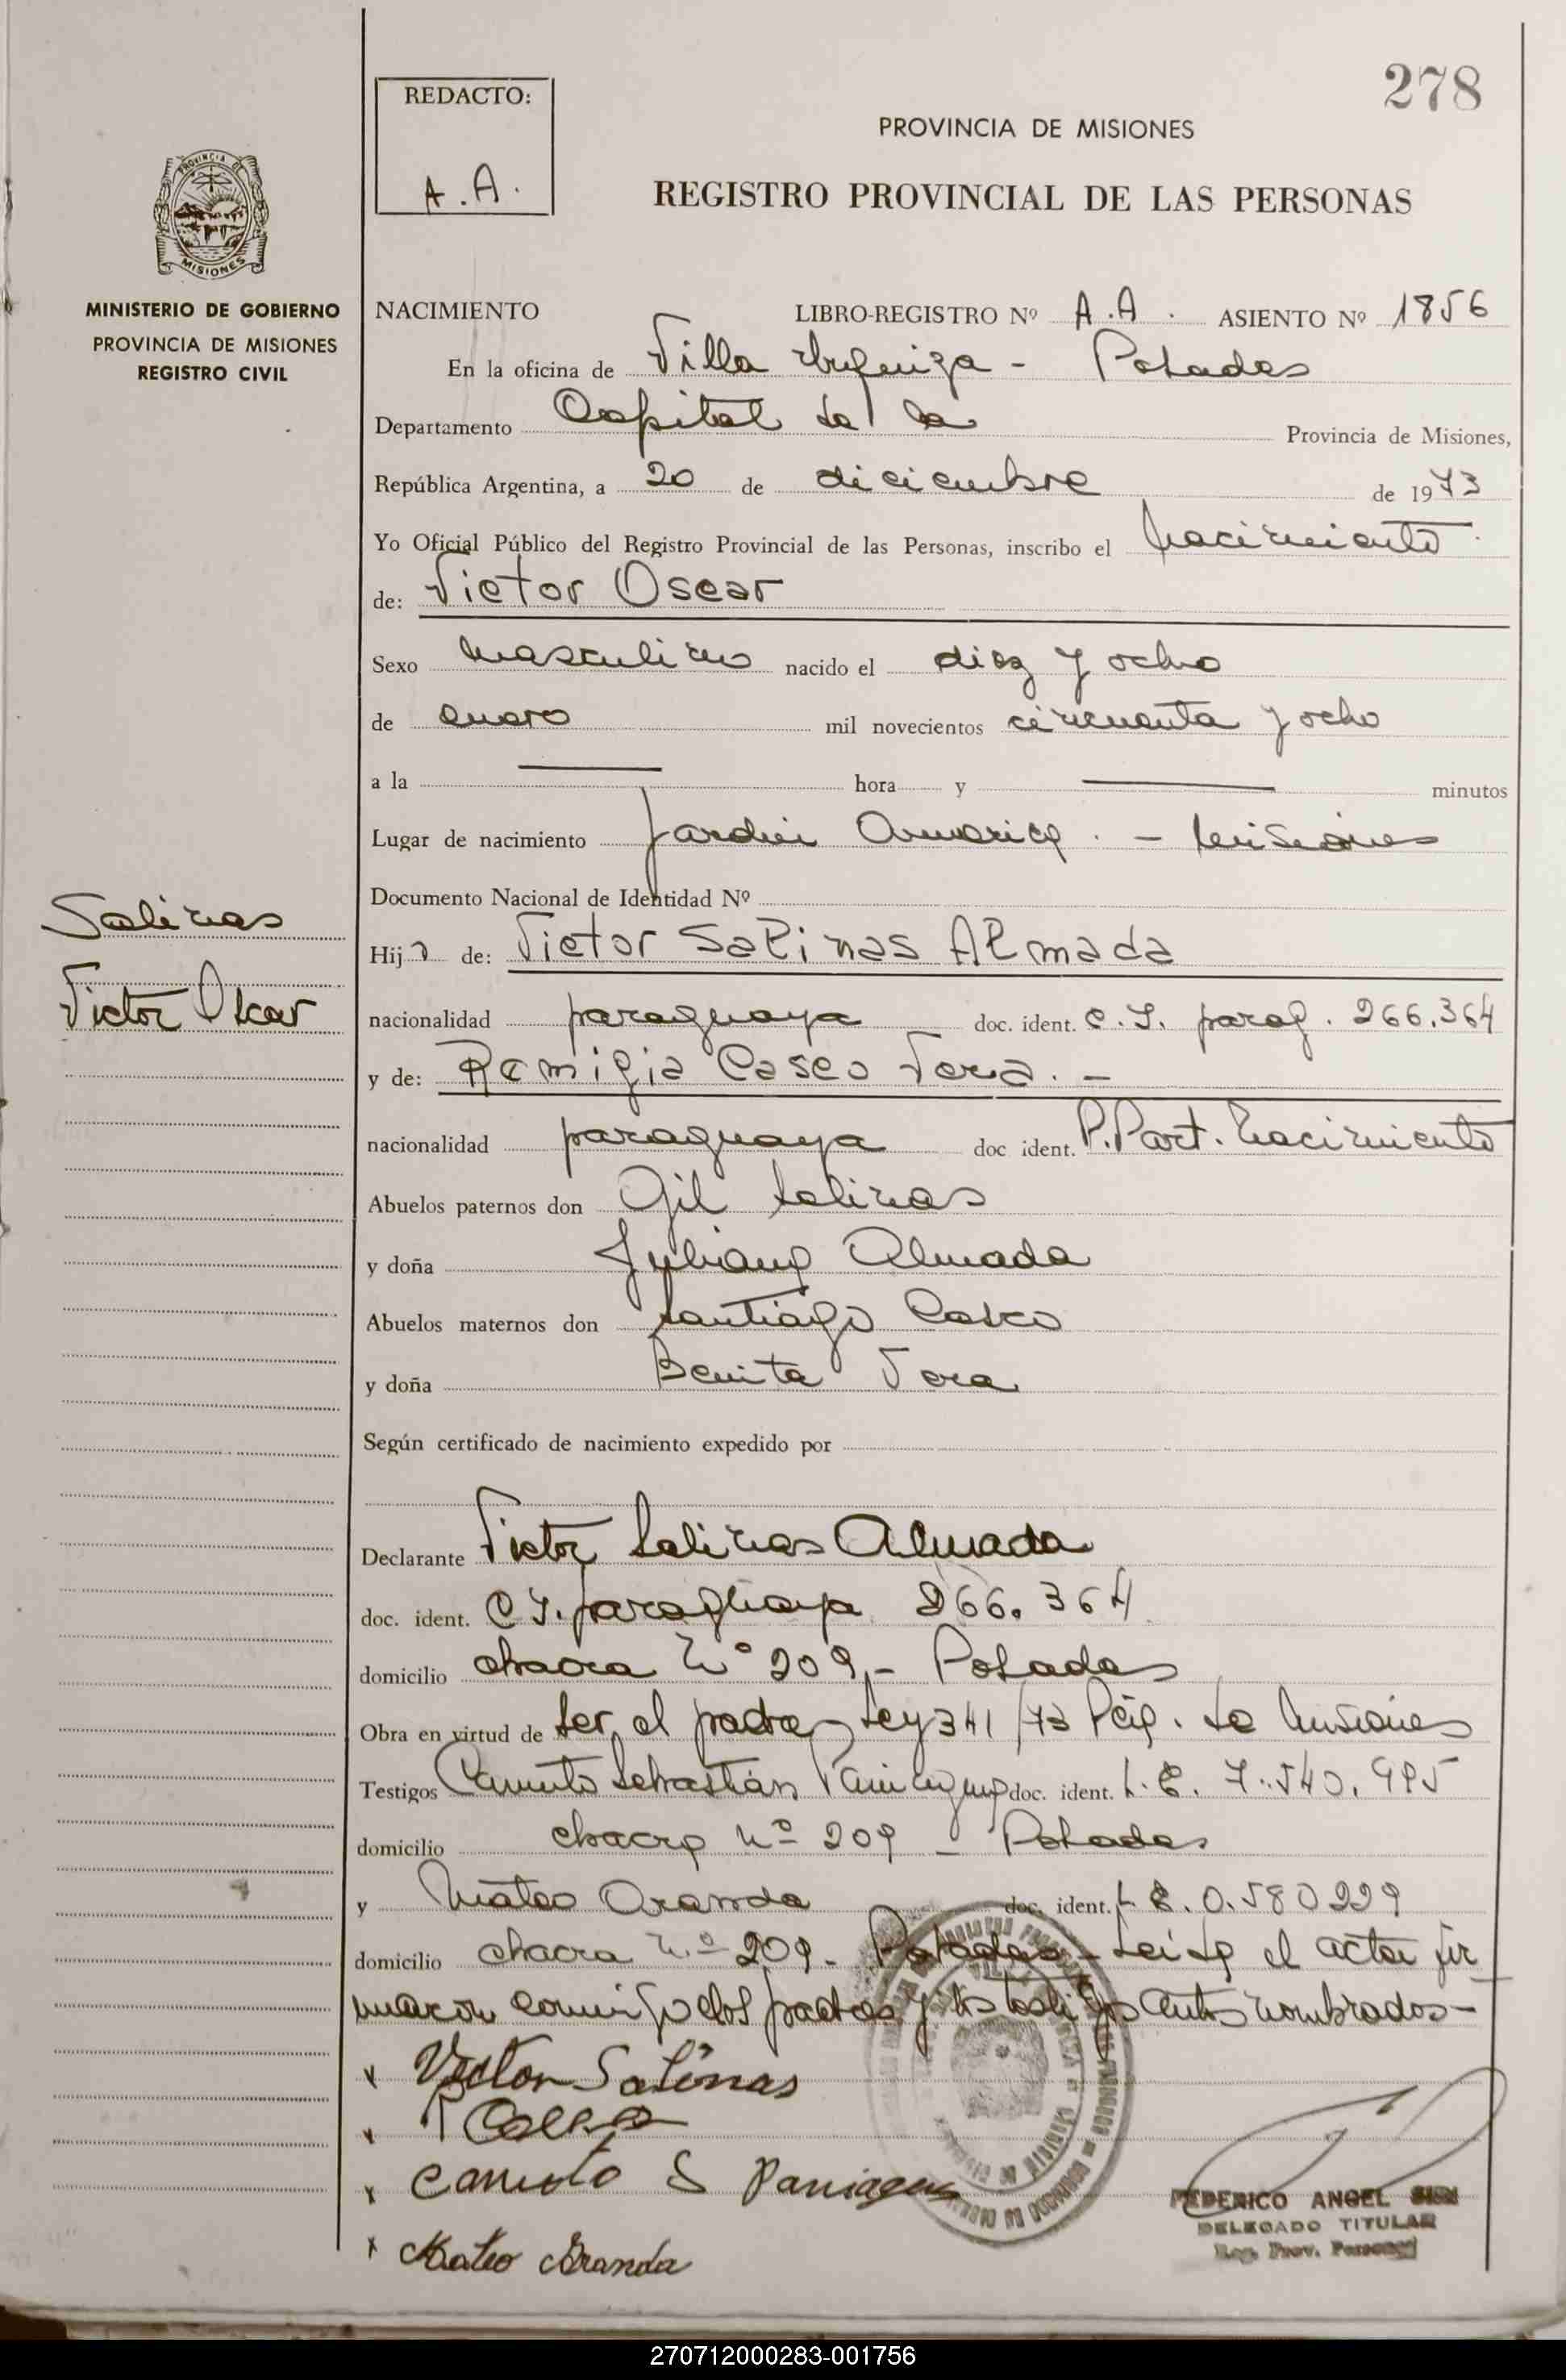 278
REDACTO:
A.A.
PROVINCIA DE MISIONES
REGISTRO PROVINCIAL DE LAS PERSONAS
PROVINCIA DE
MISIONES
MINISTERIO DE GOBIERNO
PROVINCIA DE MISIONES
REGISTRO CIVIL
NACIMIENTO LIBRO-REGISTRO Nº A.A. ASIENTO Nº 1856
En la oficina de Villa Urquiza - Posadas
Departamento Capital de la Provincia de Misiones,
República Argentina, a 20 de diciembre de 1973
Yo Oficial Público del Registro Provincial de las Personas, inscribo el nacimiento
de: Victor Oscar
Sexo masculino nacido el diez y ocho
de enero mil novecientos cincuenta y ocho
a la hora y minutos
Lugar de nacimiento Jardin America. - Misiones
Documento Nacional de Identidad Nº
Salinas
Victor Oscar
Hijo de: Victor Salinas Almada
nacionalidad paraguaya doc. ident. C.I. parag. 266.364
y de: Remigia Casco Vera. -
nacionalidad paraguaya doc ident. P. Part. Nacimiento
Abuelos paternos don Gil Salinas
y doña Juliana Almada
Abuelos maternos don Santiago Casco
y doña Benita Vera
Según certificado de nacimiento expedido por
Declarante Victor Salinas Almada
doc. ident. C I. paraguaya 266.364
domicilio chacra Nº 209,- Posadas
Obra en virtud de ser el padre, Ley 341/73 de Misiones
Testigos Canuto Sebastián Paniagua doc. ident. L.E. 7.540.995
domicilio chacra Nº 209 - Posadas
y Mateo Aranda doc. ident. L.E. 0.580229
domicilio chacra N.º 209. Posadas - Leida el acta fir
maron conmigo los padres y los testigos antes nombrados-
x Victor Salinas
x R Casco
x Canuto S Paniagua
x Mateo Aranda
FEDERICO ANGEL
DELEGADO TITULAR
Reg. Prov. Personas
270712000283-001756